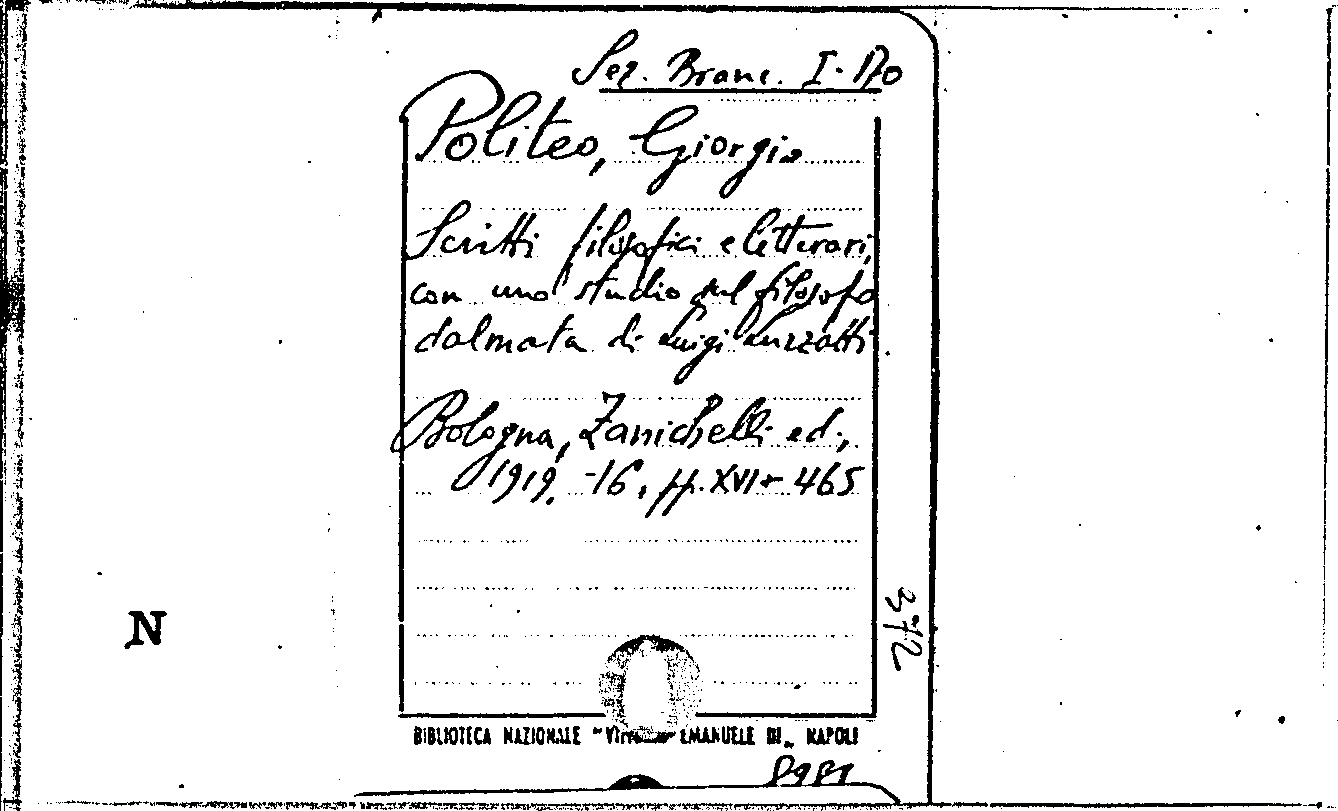 Sez. Branc. I. 170
Politeo, Giorgio
Scritti filosofici e letterari,
con uno studio sul filosofo
dalmata di Luigi Luzzatti.
Bologna, Zanichelli ed.,
1919. -16, pp. XVI + 465
372
N
BIBLIOTECA NAZIONALE " EMANUELE III„ NAPOLI
8981